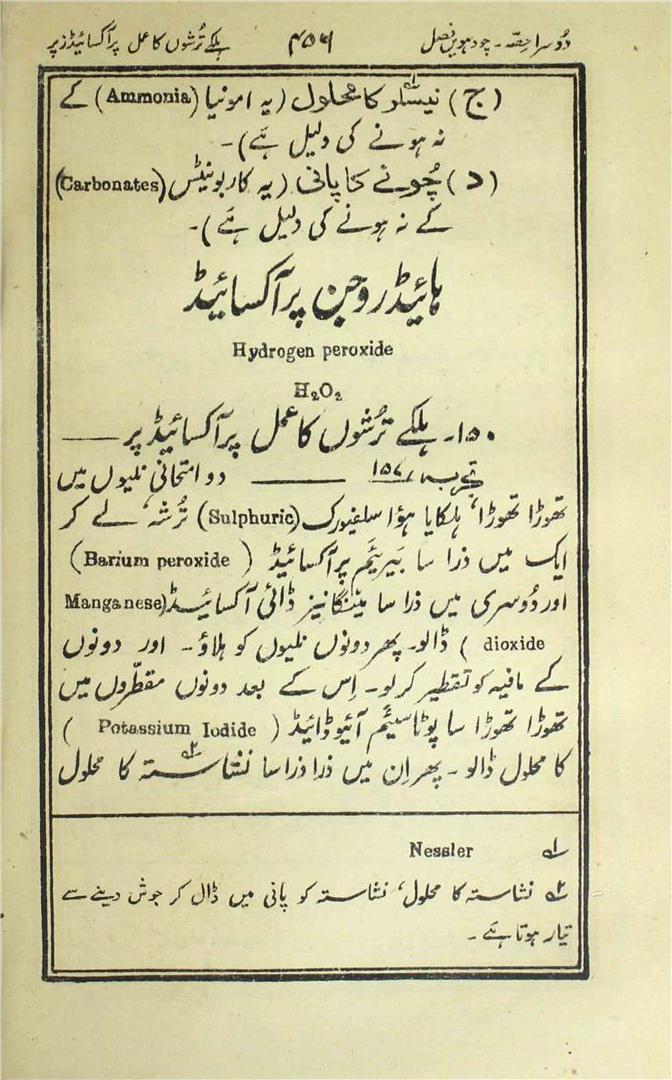 دُوسرا حِصّہ - چودہویں فصل ۴۵۶ ہلکے تُرشوں کا عمل پر آکسائیڈز پر
(ج) نیسلر۱؎ کا محلول (یہ امونیا (Ammonia) کے
نہ ہونے کی دلیل ہَے)۔
(د) چُونے کا پانی (یہ کاربونیٹس (Carbonates)
کے نہ ہونے کی دلیل ہَے)۔
ہائیڈروجن پر آکسائیڈ
Hydrogen peroxide
H₂O₂
۱۵۰۔ ہلکے تُرشوں کا عمل پر آکسائیڈ پر ——
تجربہ ۱۵۷ —— دو امتحانی نلیوں میں
تھوڑا تھوڑا، ہلکایا ہؤا سلفیورک (Sulphuric) تُرشہ، لے کر
ایک میں ذرا سا بَیریَئم پر آکسائیڈ ( Barium peroxide )
اور دُوسری میں ذرا سا مینگانیز ڈائی آکسائیڈ (Manganese
dioxide ) ڈالو۔ پھر دونوں نلیوں کو ہلاؤ۔ اور دونوں
کے مافیہ کو تقطیر کر لو۔ اِس کے بعد دونوں مقطّروں میں
تھوڑا تھوڑا سا پوٹاسیَئم آئیوڈائیڈ ( Potassium Iodide )
کا محلول ڈالو۔ پھر ان میں ذرا ذرا سا نشاستہ۲؎ کا محلول
۱؎ Nessler
۲؎ نشاستہ کا محلول، نشاستہ کو پانی میں ڈال کر جوش دینے سے
تیار ہوتا ہَے۔